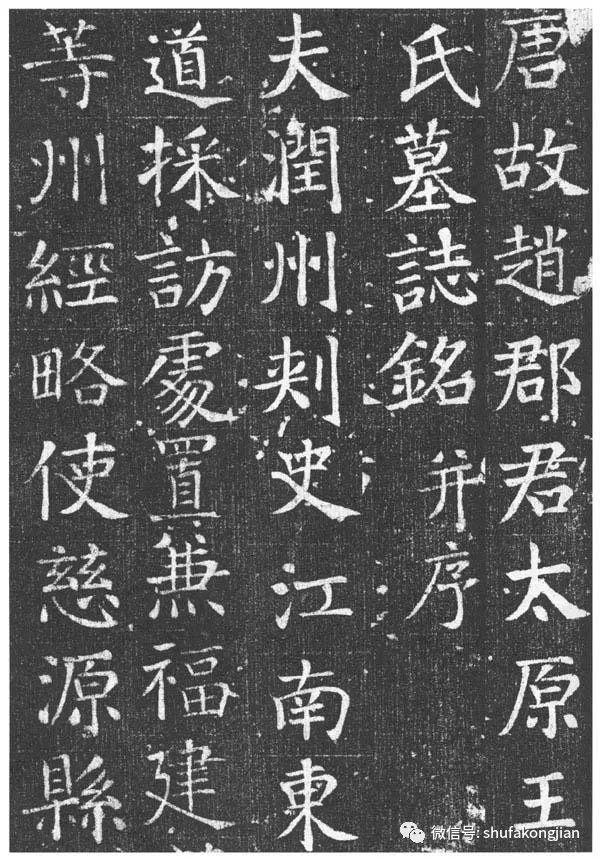 唐故趙郡君太原王
氏墓誌銘并序
夫潤州刾史江南東
道採訪處置兼福建
等州經略使慈源縣
微信号: shufakongjian